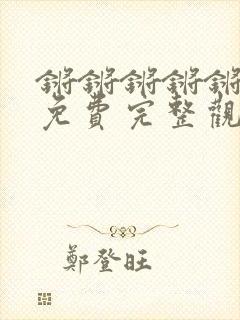 锵锵锵锵锵
免費完整觀
鄭登旺